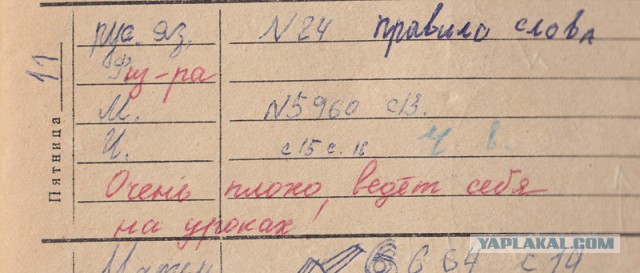 Пятница 11
рус. яз. N 24 правило слова
Физ-ра
М. N5960 с13.
И. с15 с. 16 ч. в.
Очень плохо ведёт себя
на уроках!
Матем с 14
YAPLAKAL.COM